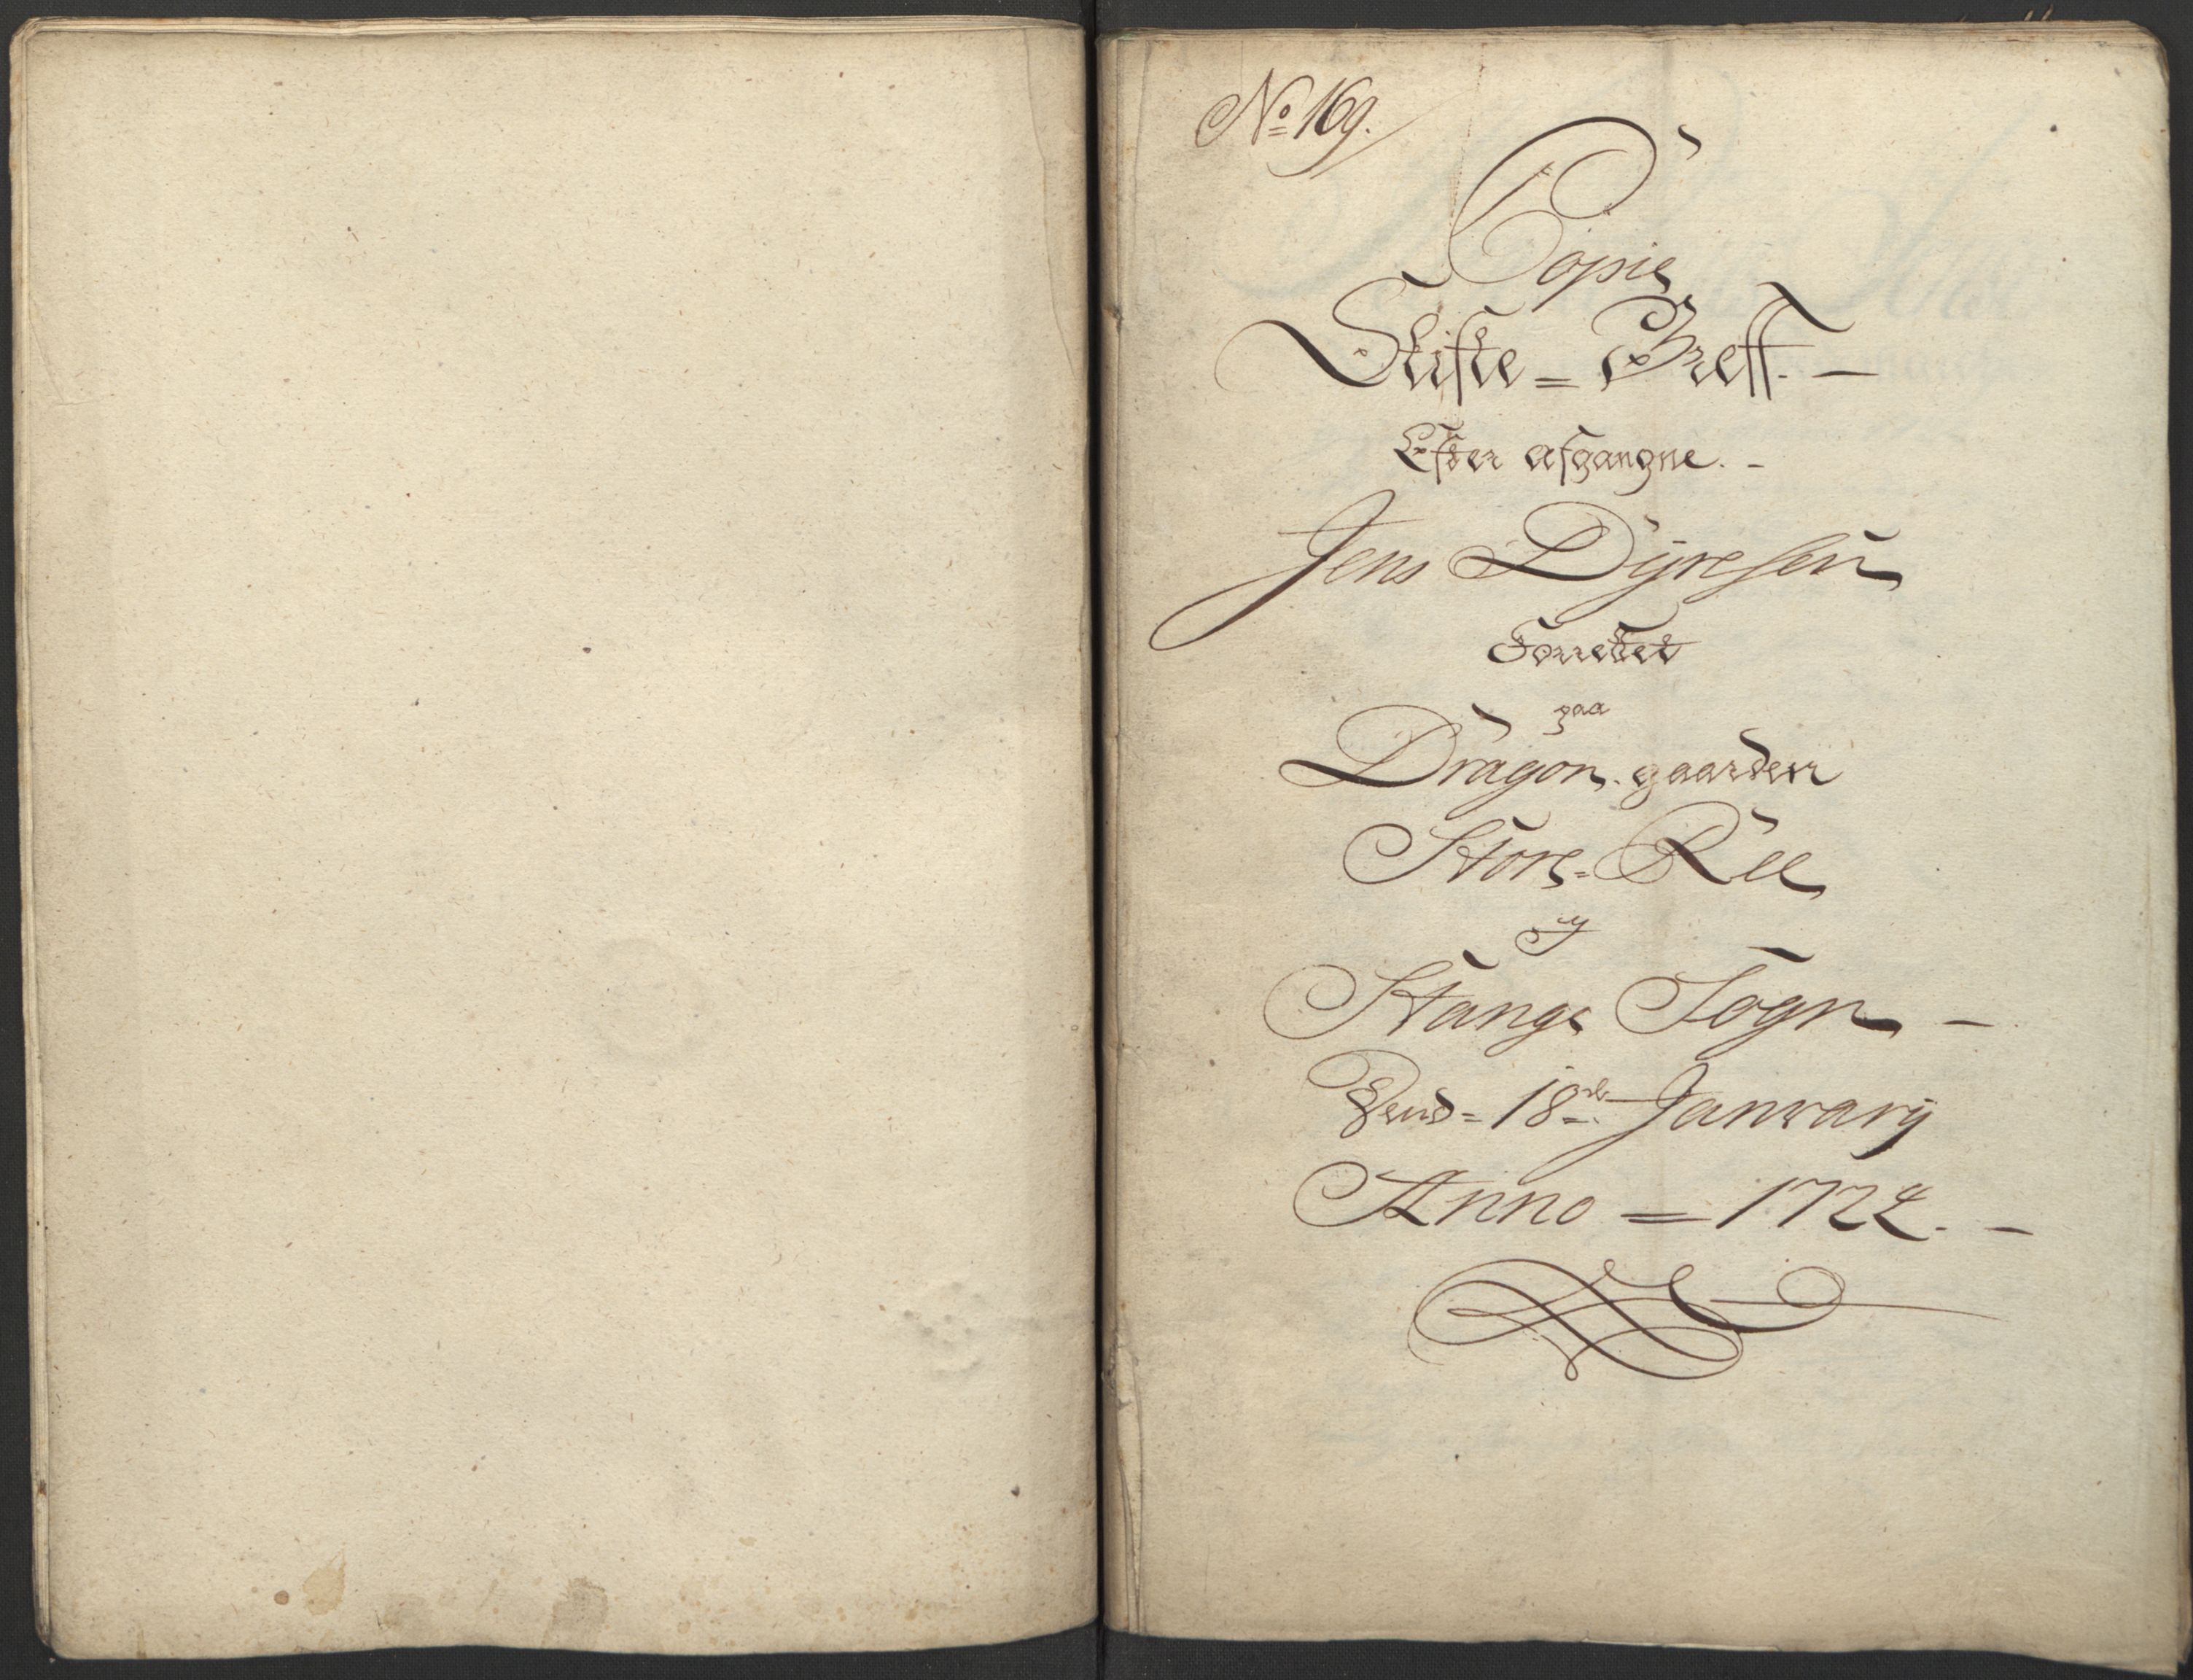 No 169.
Copie
Skifte = Breff. —
Efter afgangne. -
Jens Dyresen
Forrettet
paa
Dragon. gaarden
Store = Ree
y
Stange Sogn —
Dend = 18de January
Anno = 1724. —